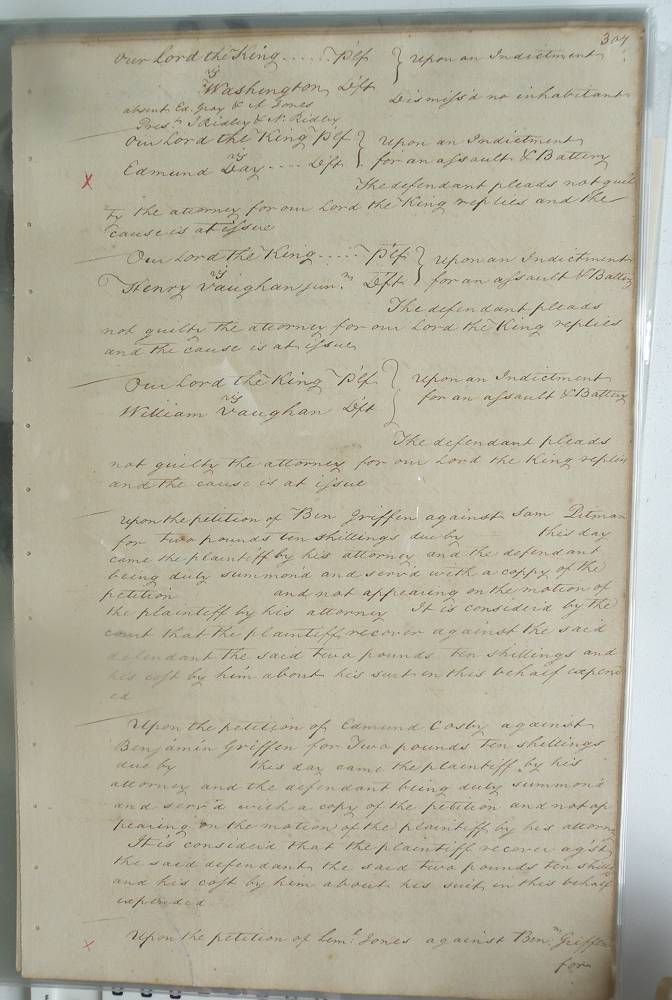 307
Our Lord the King ...... Plf } Upon an Indictment
vs
Washington Dft Dismiss'd no inhabitant
absent Ed. Gray & A Jones
Pres.t J Ridley & N. Ridley
Our Lord the King Plf } Upon an Indictment
vs
Edmund Day .... Dft } for an assault & Battery
The defendant pleads not guil
ty the attorney for our Lord the King replies and the
cause is at issue
Our Lord the King ..... Plf } Upon an Indictment
vs
Henry Vaughan jun.r Dft } for an assault & Battery
The defendant pleads
not guilty the attorney for our Lord the King replies
and the cause is at issue
Our Lord the King Plf } Upon an Indictment
vs
William Vaughan Dft for an assault & Battery
The defendant pleads
not guilty the attorney for our Lord the King replies
and the cause is at issue
Upon the petition of Ben Griffen against Sam Pitman
for two pounds ten shillings due by this day
came the plaintiff by his attorney and the defendant
being duly summon'd and serv'd with a coppy of the
petition and not appearing on the motion of
the plaintiff by his attorney It is consider'd by the
court that the plaintiff recover against the said
defendant the said two pounds ten shillings and
his cost by him about his suit in this behalf expend
ed
Upon the petition of Edmund Cosby against
Benjamin Griffen for Two pounds ten shillings
due by this day came the plaintiff by his
attorney and the defendant being duly summon'd
and serv'd with a copy of the petition and not ap
pearing on the motion of the plaintiff by his attorny
It is consider'd that the plaintiff recover ag'st
the said defendant the said two pounds ten shills
and his cost by him about his suit in this behalf
expended
Upon the petition of Jones against Ben.n Griffen
for